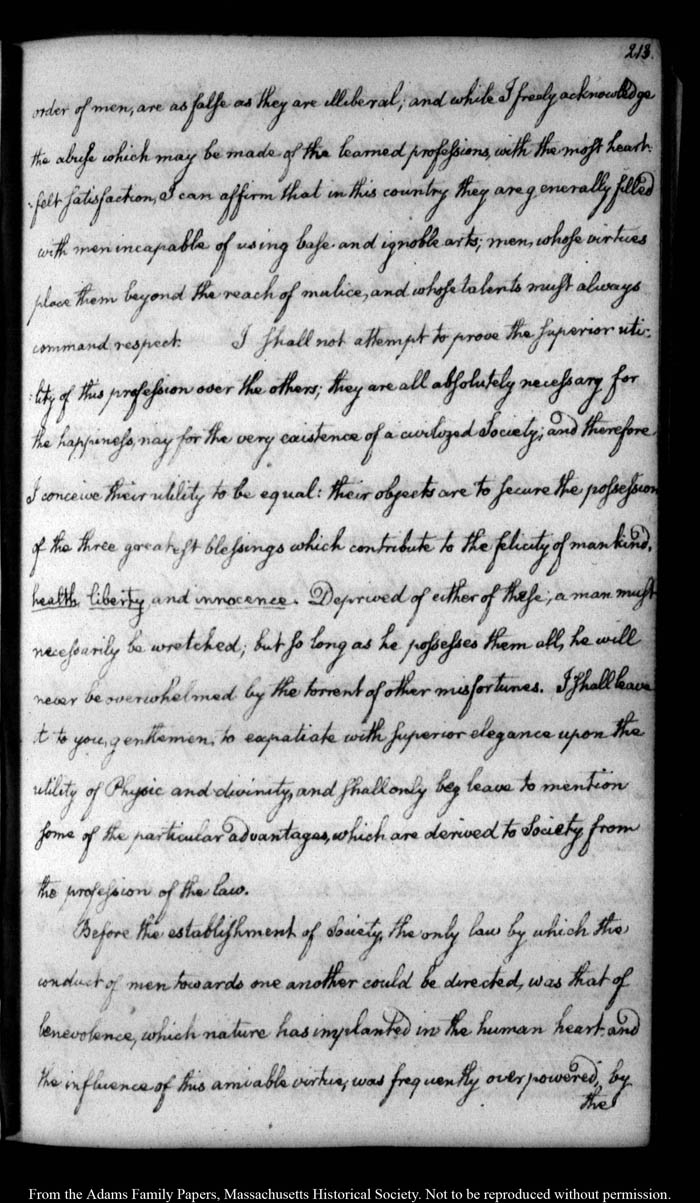 213.
order of men, are as false as they are illiberal; and while I freely acknowledge
the abuse which may be made of the learned professions, with the most heart-
-felt satisfaction, I can affirm that in this country they are generally filled
with men incapable of using base and ignoble arts; men, whose virtues
place them beyond the reach of malice, and whose talents must always
command respect. I shall not attempt to prove the superior uti-
-lity of this profession over the others; they are all absolutely necessary for
the happiness, nay for the very existence of a civilized Society; and therefore
I conceive their utility to be equal: their objects are to secure the possession
of the three greatest blessings which contribute to the felicity of mankind,
health liberty and innocence. Deprived of either of these, a man must
necessarily be wretched; but so long as he possesses them all, he will
never be overwhelmed by the torrent of other misfortunes. I shall leave
it to you, gentlemen, to expatiate with superior elegance upon the
utility of Physic and divinity, and shall only beg leave to mention
some of the particular advantages, which are derived to Society from
the profession of the law.
Before the establishment of Society, the only law by which the
conduct of men towards one another could be directed, was that of
benevolence, which nature has implanted in the human heart. and
the influence of this amiable virtue, was frequently overpowered, by
the
From the Adams Family Papers, Massachusetts Historical Society. Not to be reproduced without permission.